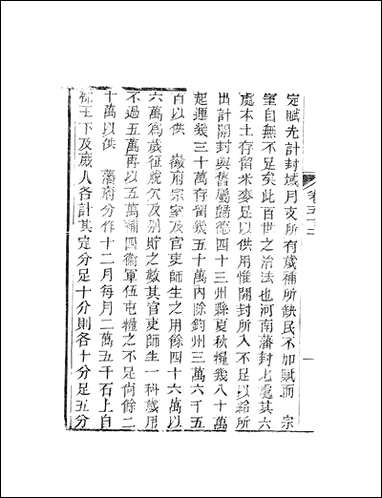 定賦先計封域用支所有歲補所缺民不加賦而 宗
室自無不足矣此百世之治法也河南藩封七處其六
處本土存留米麥足以供用惟開封所入不足以給所
出計開封與舊屬歸德四十三州縣夏秋糧幾八十萬
起運幾三十萬存留幾五十萬內除鈞州三萬六千五
百以供 徽府宗室及官吏師生之用餘四十六萬以
六萬為歲徵歲欠及別貯之數其官吏師生一科歲用
不過五萬再以五萬補四衞軍伍屯糧之不足尚餘二
十萬以供 藩府分作十二月每月二萬五千石上自
王下及歲人各計其定分足十分則各十分足五分
卷五十二
一